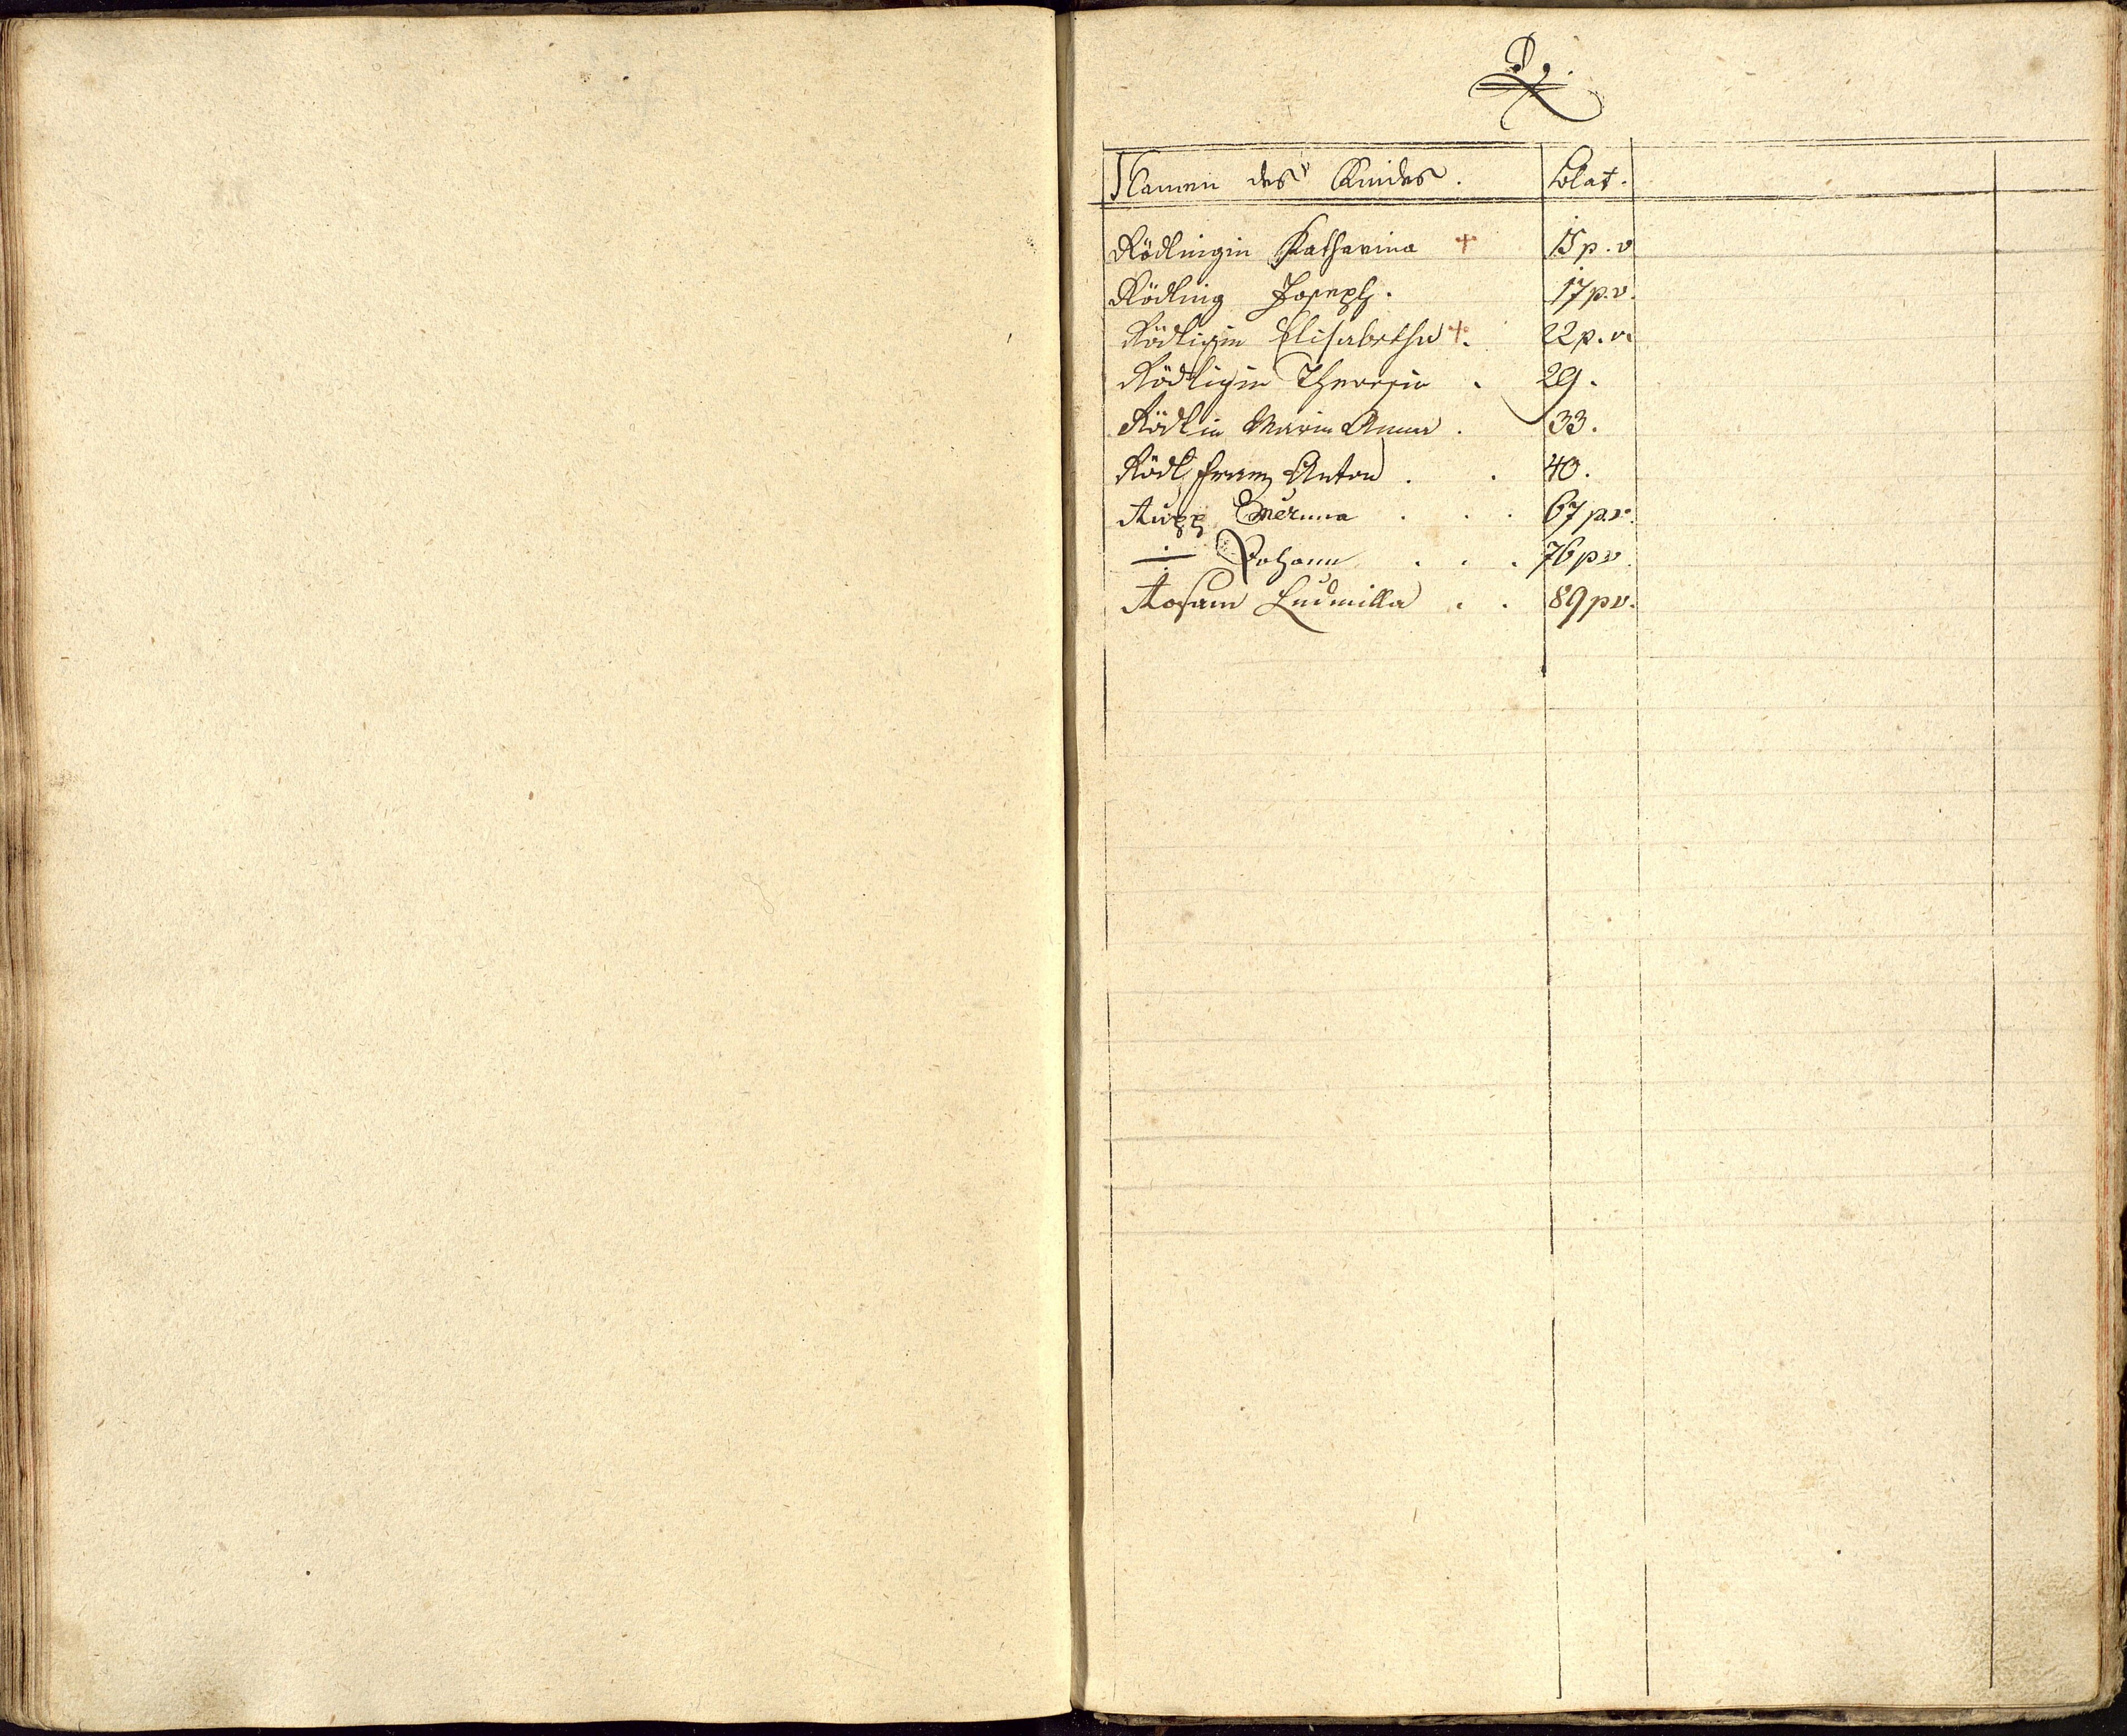 R.
Namen des Kindes. Folat.
Rödlingin Katharina + 15 p. v
Rödling Joseph. 17 p. v.
Rödligin Elisabetha +. 22 p. v.
Rödligin Theresia . 29.
Rödlin Maria Anna . 33.
Rödl Franz Anton . . 40.
Rupp . . . 67 p. v.
÷ Johann . . . 76 pv.
Rosam Ludmilla . . 89 pv.